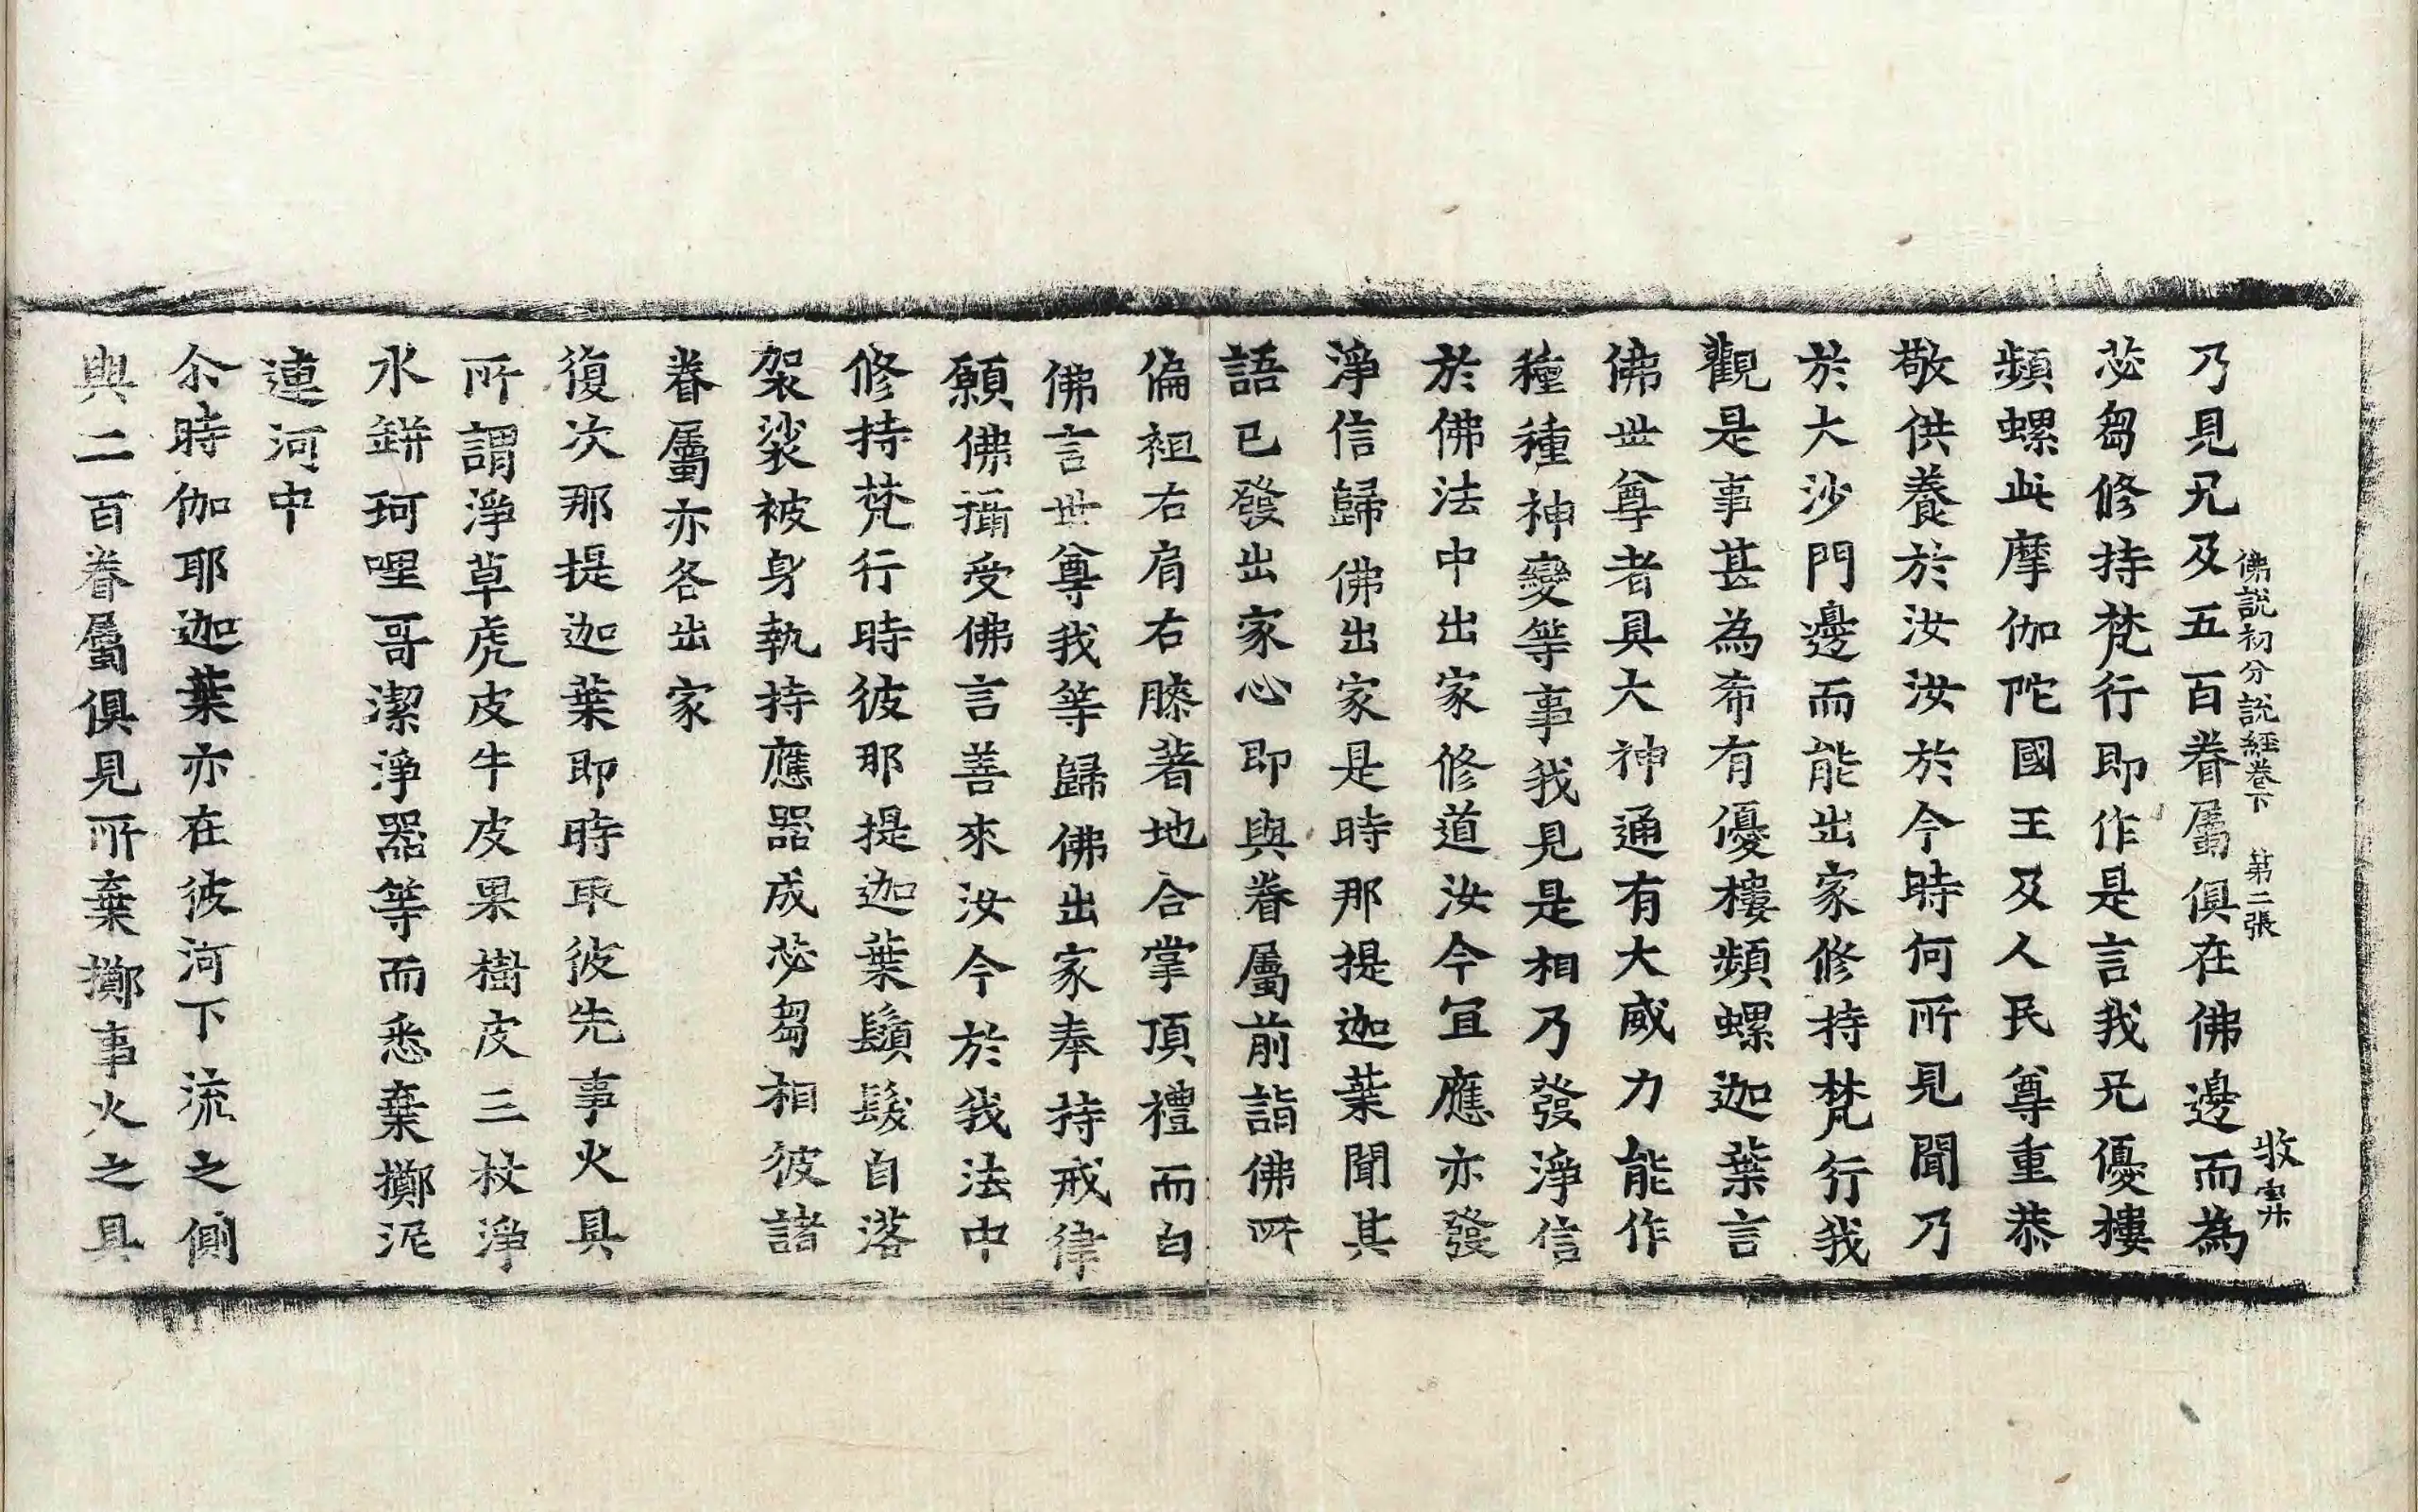 乃見兄及五百眷屬俱在佛邊而為
佛說初分說經卷下 第二張
苾芻修持梵行即作是言我兄優樓
頻螺此摩伽陀國王及人民尊重恭
敬供養於汝汝於今時何所見聞乃
於大沙門邊而能出家修持梵行我
觀是事甚為希有優樓頻螺迦葉言
佛世尊者具大神通有大威力能作
種種神變等事我見是相乃發淨信
於佛法中出家修道汝今宜應亦發
淨信歸佛出家是時那提迦葉聞其
語已發出家心即與眷屬前詣佛所
偏袒右肩右膝著地合掌頂禮而白
佛言世尊我等歸佛出家奉持戒律
願佛攝受佛言善來汝今於我法中
修持梵行時彼那提迦葉鬚髮自落
袈裟被身執持應器成苾芻相彼諸
眷屬亦各出家
復次那提迦葉即時取彼先事火具
所謂淨草虎皮牛皮果樹皮三杖淨
水缾珂哩哥潔淨器等而悉棄擲泥
連河中
尒時伽耶迦葉亦在彼河下流之側
與二百眷屬俱見所棄擲事火之具